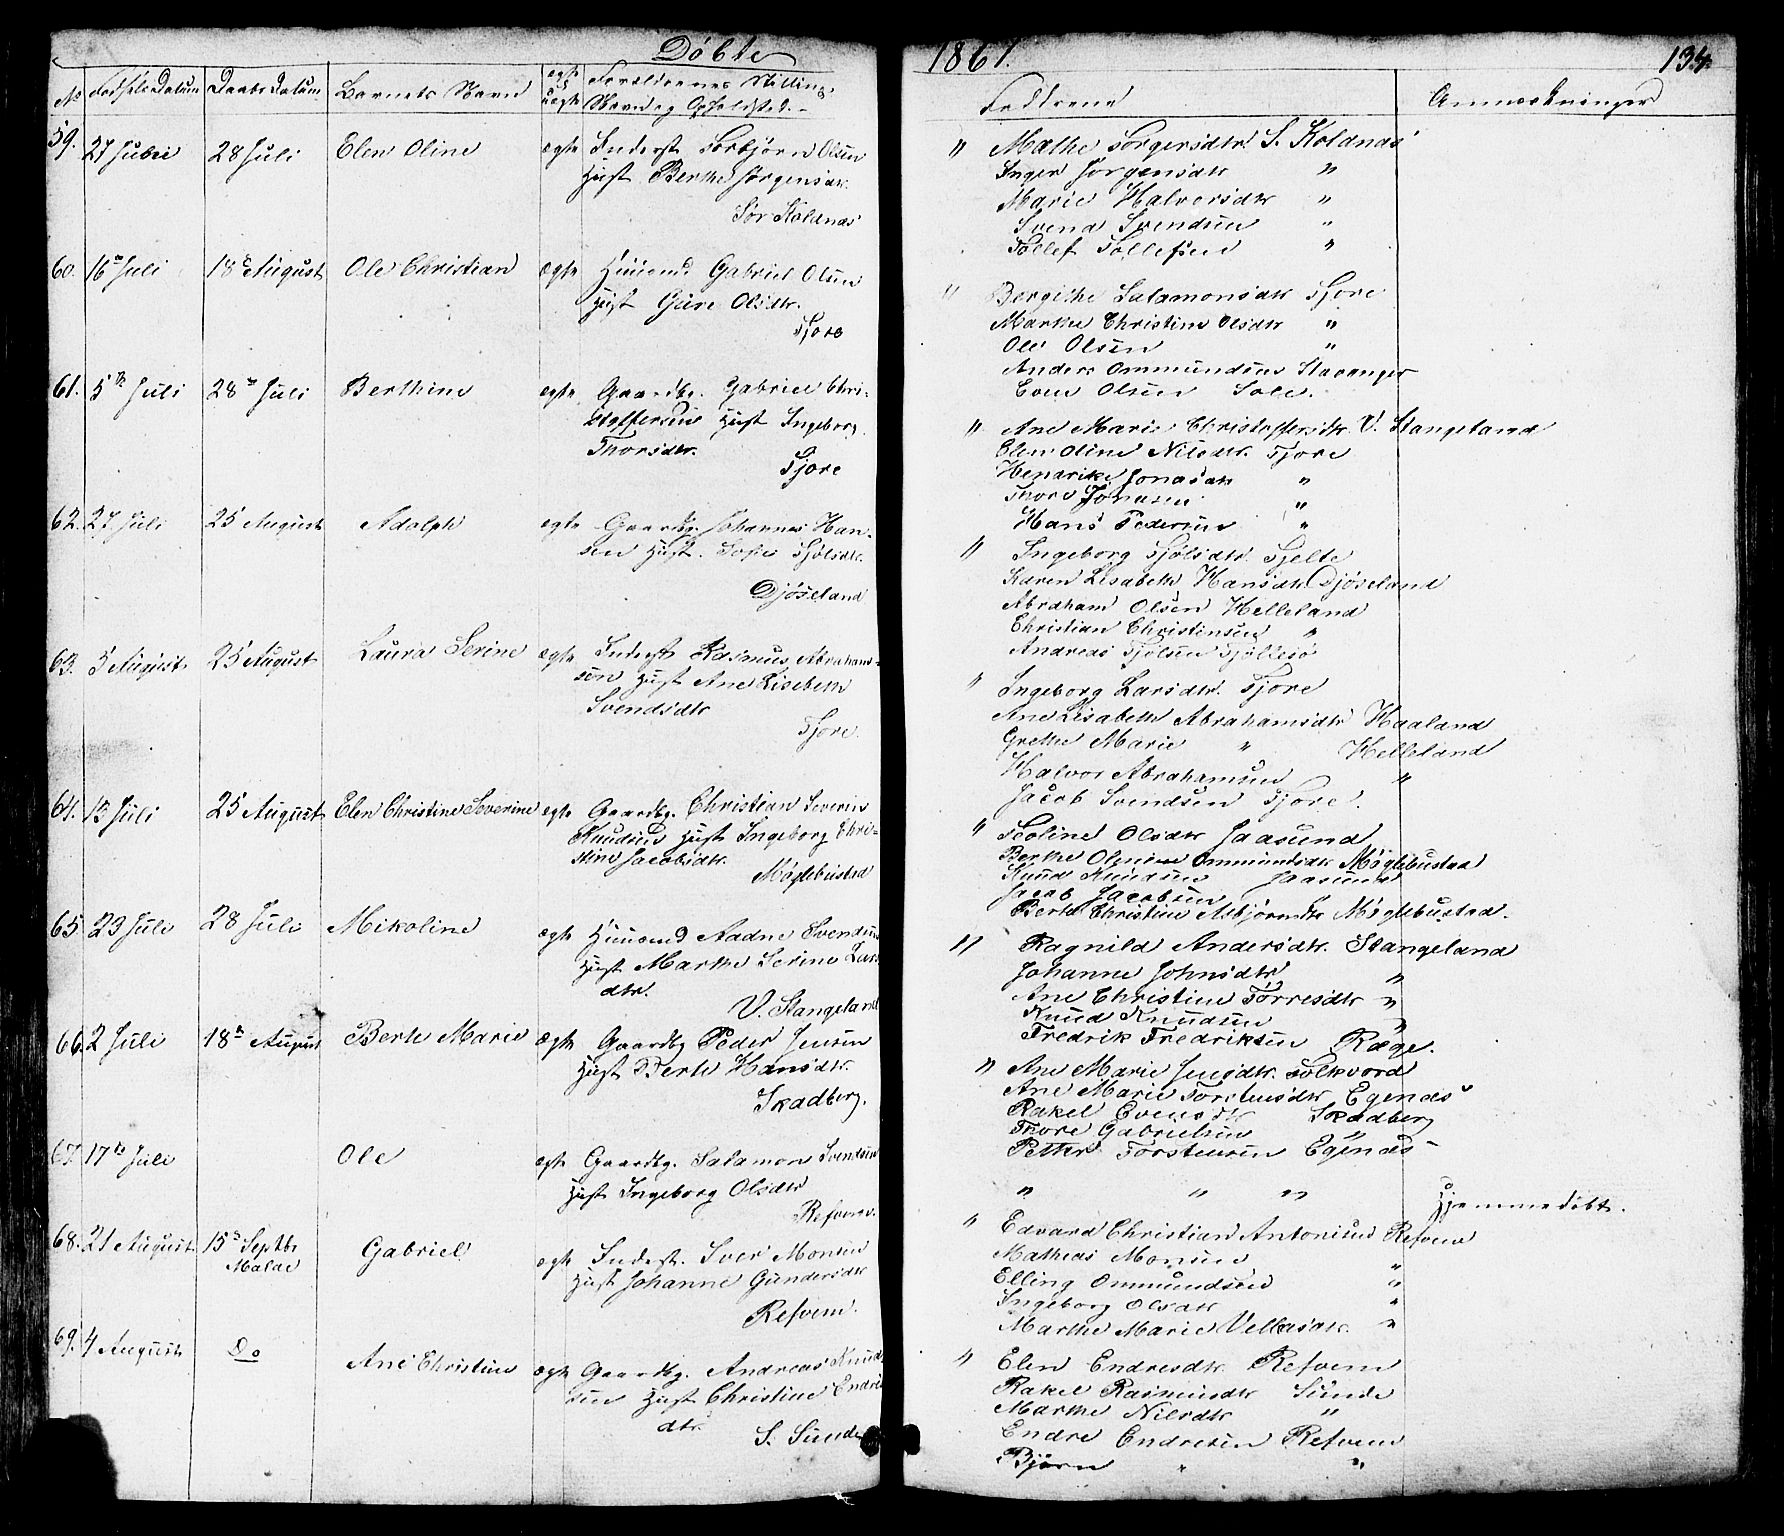 Døbte
1867.
134.
No Fødsels Datum Daabs Datum Barnets Navn ægte uægte Forældrenes Stilling Navn og Opholdsted.
Faddrene
Anmærkninger
59. 27 Juli 28 Juli Elen Oline ægte Inderst Torbjörn Olsen
Hust Berthe Jörgensdtr.
Sör Kolnæs
" Malhe Torgersdtr. S. Kolnæs
Inger Jörgensdtr "
Marie Halvorsdtr "
Svend Svendsen "
Tollef Tollefsen "
60. 16de Juli 18de August Ole Christian ægte Huusmd Gabriel Olsen
Hust Gure Olsdtr.
Tjore
" Bergithe Salamonsdtr Tjore
Marthe Christine Olsdtr "
Ole Olsen "
Anders Ommundsen Stavanger
Even Olsen Sole.
61. 5te Juli 28de Juli Berthine ægte Gaardbr. Gabriel Chri-
stoffersen Hust Ingeborg
Thorsdtr.
Tjore
" Ane Marie Christoffersdtr V. Stangeland
Elen Oline Nilsdtr. Tjore
Hendrike Jonasdtr "
Thore Jonasen "
Hans Pedersen "
62. 27 Juli 25 August Adolph ægte Gaardbg. Johannes Han-
sen Hust. Sofie Tjölsdtr.
Djöseland
" Ingeborg Tjölsdtr. Tjelte
Karen Lisabeth Hansdtr Djöseland
Abraham Olsen Helleland
Christian Christensen "
Andreas Tjölsen Tjöllesö
63. 5 August 25 August Laura Serine ægte Inderst Rasmus Abraham-
sen Hust Ane Lisebeth
Svendsdtr
Tjore.
" Ingeborg Larsdtr. Tjore
Ane Lisabeth Abrahamsdtr Haaland
Grethe Marie " Helleland
Halvor Abrahamsen "
Jacob Svendsen Tjore.
64. 13 Juli 25 August Elen Christine Severine ægte Gaardbg. Christian Severin
Knudsen Hust Ingeborg Chri-
stine Jacobsdtr.
Møglebustad
" Teoline Olsdtr Jaasund
Berthe Olene Ommundsdtr Møglebustad
Knud Knudsen Jaasund
Jacob Jacobsen
Berthe Christine Asbjörnsdtr Møglebustad.
65 23 Juli 28 Juli Mikoline ægte Huusmd Aadne Svendsen
Hust Marthe Serine Lars
dtr.
V. Stangeland
" Ragnild Andersdtr. Stangeland
Johanne Johnsdtr "
Ane Christine Törresdtr "
Knud Knudsen "
Fredrik Fredriksen Ræge.
66. 2 Juli 18de August Berte Marie ægte Gaardbg Peder Jensen
Hust Berte Hansdtr.
Skadberg.
" Ane Marie Jensdtr. Folkvord
Ane Marie Torstensdtr Egenæs
Rakel Evensdtr Skadberg
Thore Gabrielsen "
Petter Torstensen Egenæs
67. 17de Juli Ole ægte Gaardbg. Salamon Svendsen
Hust Ingeborg Olsdtr
Refvem.
" " " Hjemmedöbt.
68. 21 August 15de Septbr Gabriel ægte Inderst. Iver Monsen
Malde
Hust Johanne Gundersdtr
Refvem.
" Edvard Christian Antonius Refvem
Mathias Monsen "
Elling Ommundsen "
Ingeborg Olsdtr "
Marthe Marie Vellasdtr. "
69. 4 August Do Ane Christine ægte Gaardbg. Andreas Knud
sen Hust Christine Endres
dtr.
S. Sunde
" Elen Endresdtr. Refvem
Rakel Rasmusdtr Sunde
Marthe Nilsdtr "
Endre Endresen Refvem
Björn " "